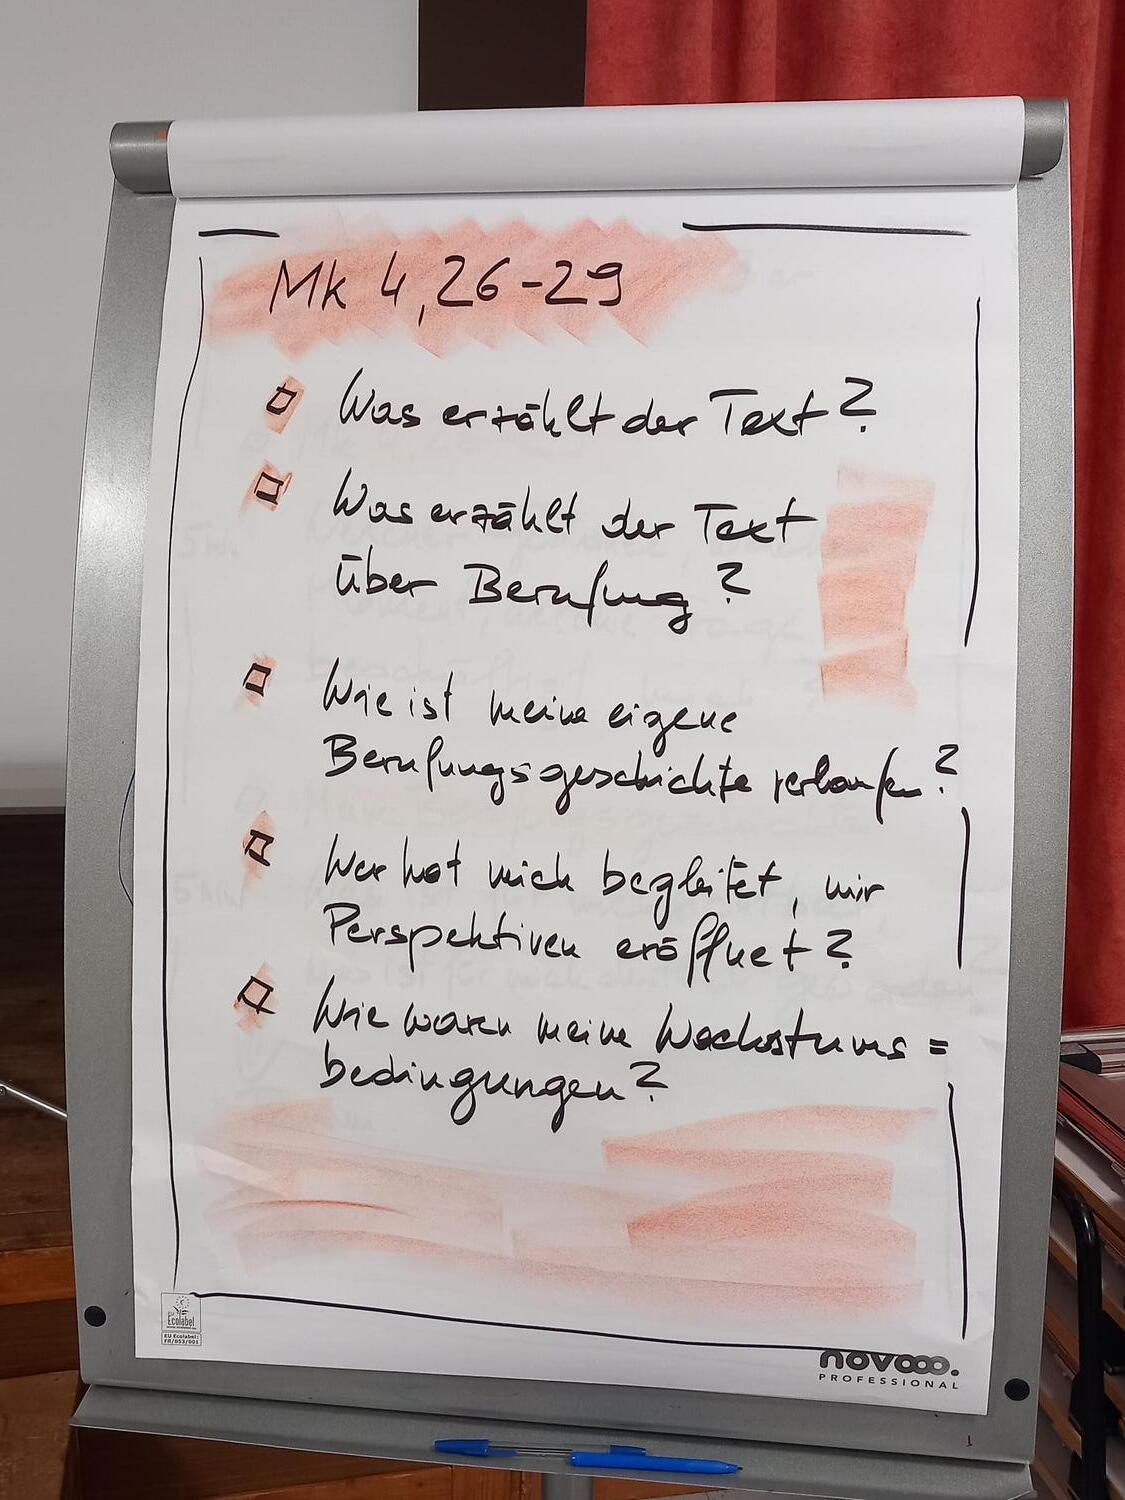 Mk 4,26-29
Was erzählt der Text?
Was erzählt der Text
über Berufung?
Wie ist meine eigene
Berufungsgeschichte verlaufen?
Wer hat mich begleitet, mir
Perspektiven eröffnet?
Wie waren meine Wachstums=
bedingungen?
Ecolabel
EU Ecolabel:
FR/053/001
novooo.
PROFESSIONAL